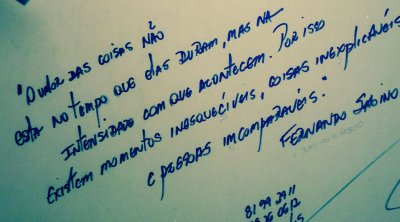 "O valor das coisas não
está no tempo que elas duram, mas na
intensidade com que acontecem. Por isso
existem momentos inesquecíveis, coisas inexplicáveis
e pessoas incomparáveis."
Fernando Sabino